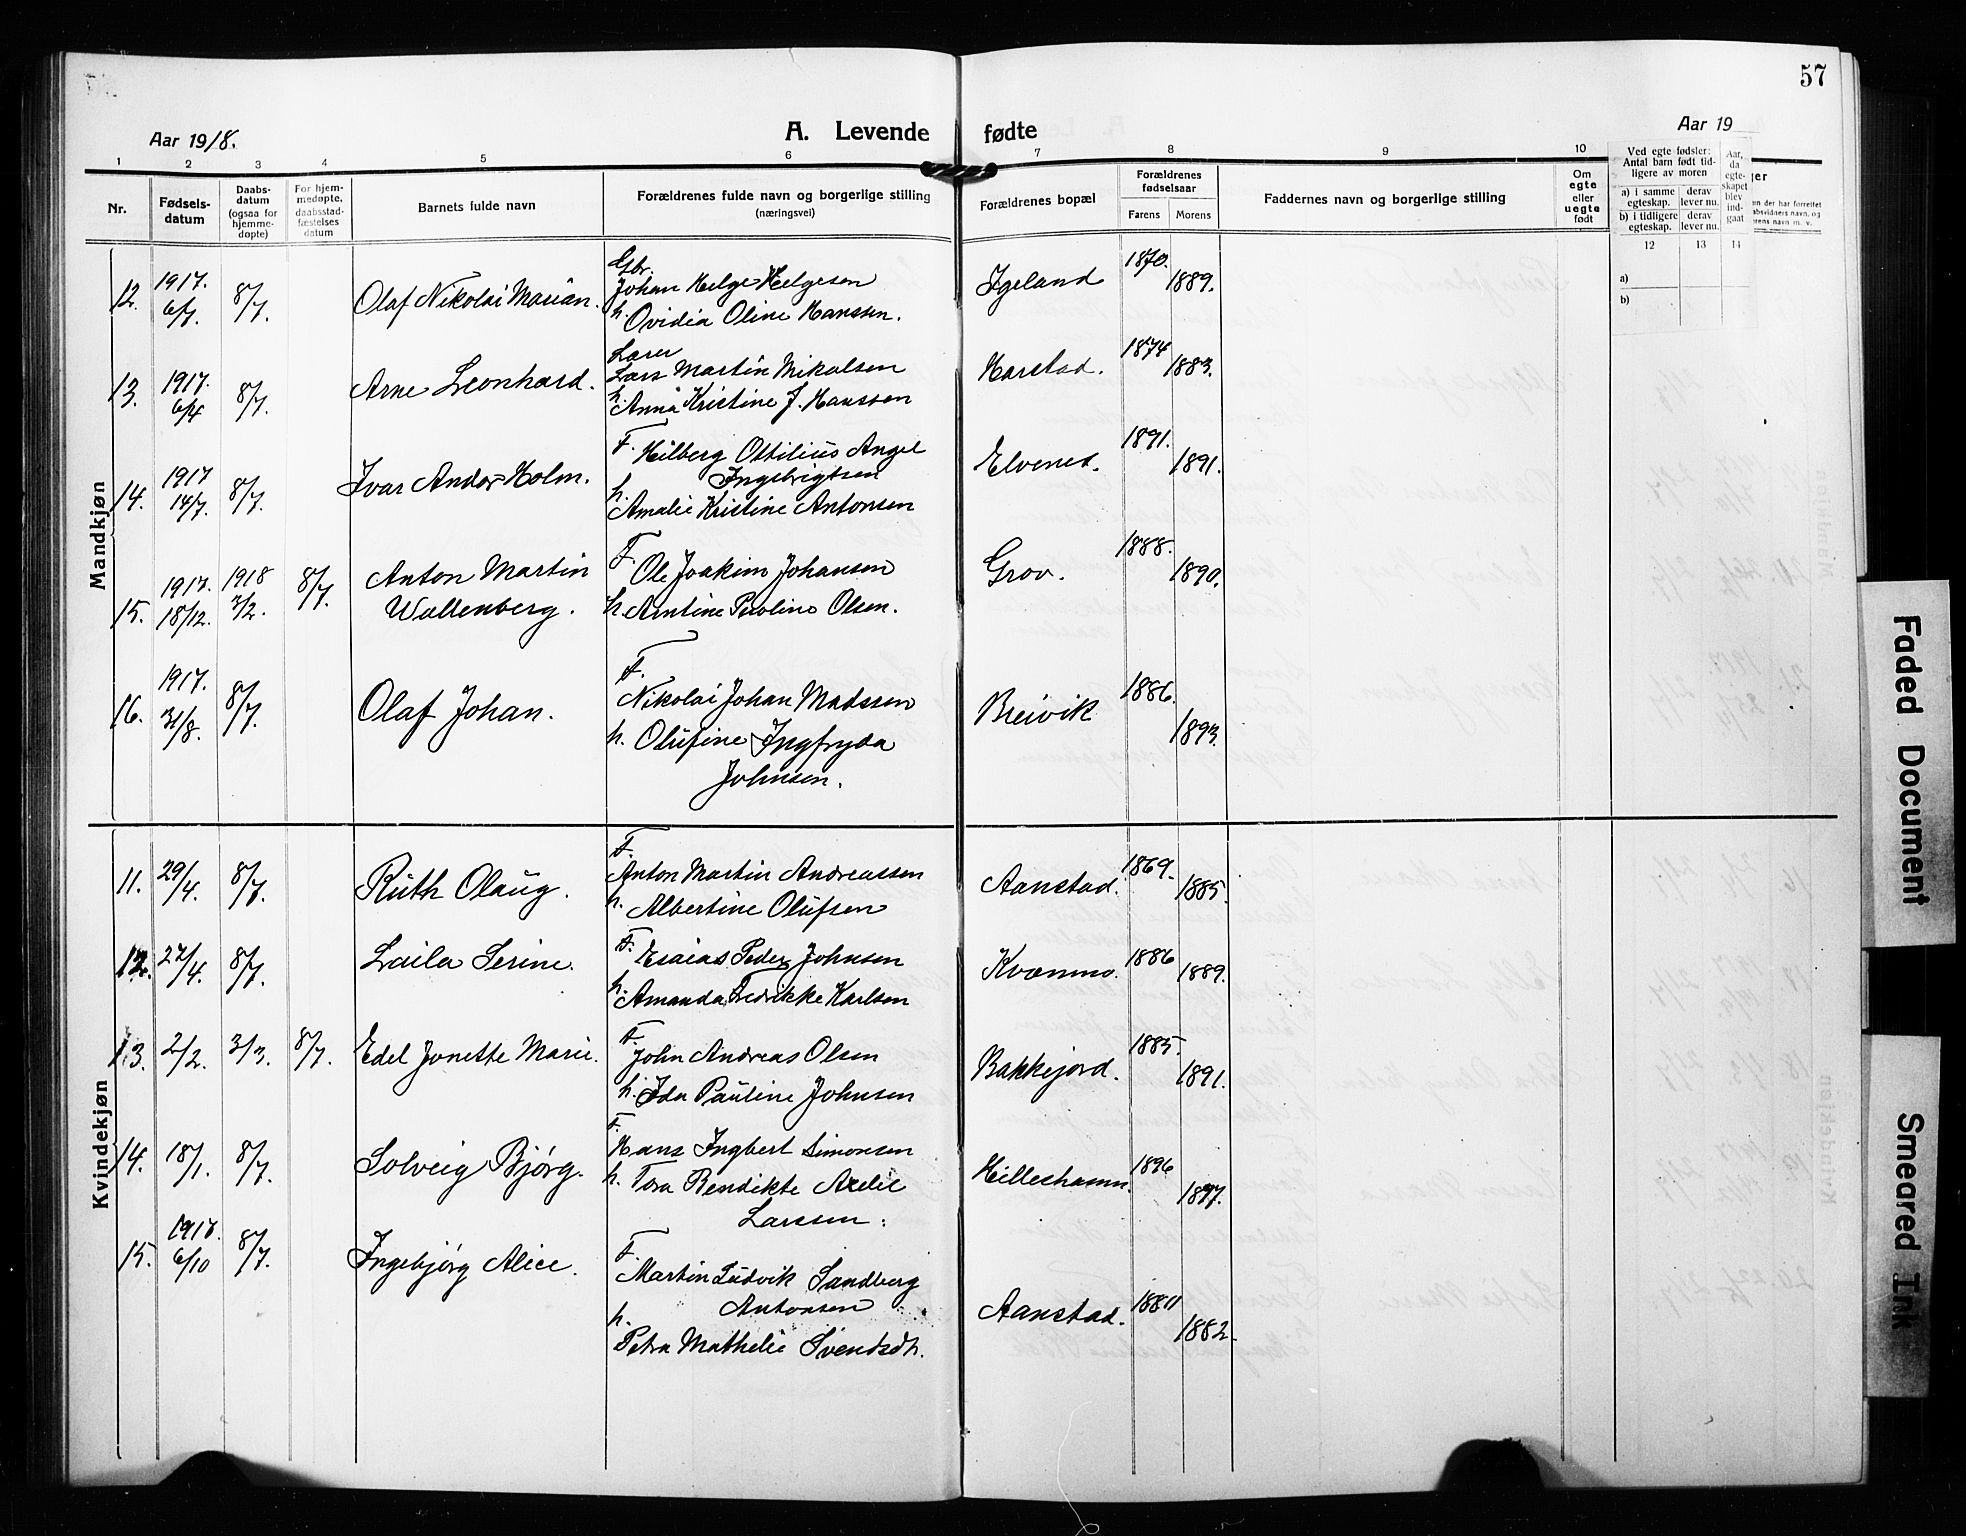 57
Aar 1918.
A. Levende fødte
Aar 19
1 2 3 4 5 6 7 8 9 10
Nr.
Fødsels-
datum
Daabs-
datum
(ogsaa for
hjemme-
døpte)
For hjem-
medøpte,
daabsstad-
fæstelses
datum
Barnets fulde navn
Forældrenes fulde navn og borgerlige stilling
(næringsvei)
Forældrenes bopæl
Forældrenes
fødselsaar
Farens Morens
Faddernes navn og borgerlige stilling
Om
egte
eller
uegte
født
Ved egte fødsler:
Antal barn født tid-
ligere av moren
a) i samme
egteskap.
derav
lever nu.
b) i tidligere
egteskap.
derav
lever nu.
Aar,
da
egte-
skapet
blev
ind-
gaat
12 13 14
a)
b)
Mandkjøn
12. 1917. 6/7. 8/7. Olaf Nikolai Marian.
Gbr.
Johan Helge Helgesen
h. Ovidia Oline Hanssen.
Igeland 1870. 1889.
13. 1917. 6/4 8/7. Arne Leonhard.
Lærer
Lars Martin Nikolsen
h. Anna Kristine J. Hanssen
Harstad. 1874 1883.
14. 1917 14/7. 8/7. Ivar Andor Holm.
F. Hilberg Ottilius Angel
Ingebrigtsen
h. Amalie Kristine Antonsen
Elvenes. 1891. 1891.
15. 1917. 18/12. 1918 3/2. 8/7. Anton Martin
Wallenberg.
F. Ole Joakim Johansen
h. Arntine Pauline Olsen.
Grov. 1888. 1890.
16. 1917. 31/8. 8/7. Olaf Johan.
F.
Nikolai Johan Madssen
h. Olufine Ingfryda
Johnsen.
Breivik 1886. 1893.
Kvindekjøn
11. 29/4. 8/7. Ruth Olaug.
F.
Anton Martin Andreassen
h. Albertine Olufsen
Aanstad. 1869. 1885.
12. 27/4. 8/7. Laila Serine.
F. Esaias Peder Johnsen
h. Amanda Fredrikke Karlsen
Kvænmo. 1886 1889.
13. 2/2. 3/3. 8/7. Edel Jonette Marie.
F.
John Andreas Olsen
h. Ida Pauline Johnsen
Bakkejord. 1885. 1891.
14. 18/1. 8/7. Solveig Bjørg.
F.
Hans Ingbert Simonsen
h. Tora Bendikte Axelie
Larssen.
Hilleshamn. 1896 1897.
15. 1917. 6/10 8/7. Ingebjørg Alice.
F.
Martin Ludvik Sandberg
Antonsen
h.
Petra Mathelie Svendsdt.
Aanstad. 1882.
Faded Document
Smeared Ink